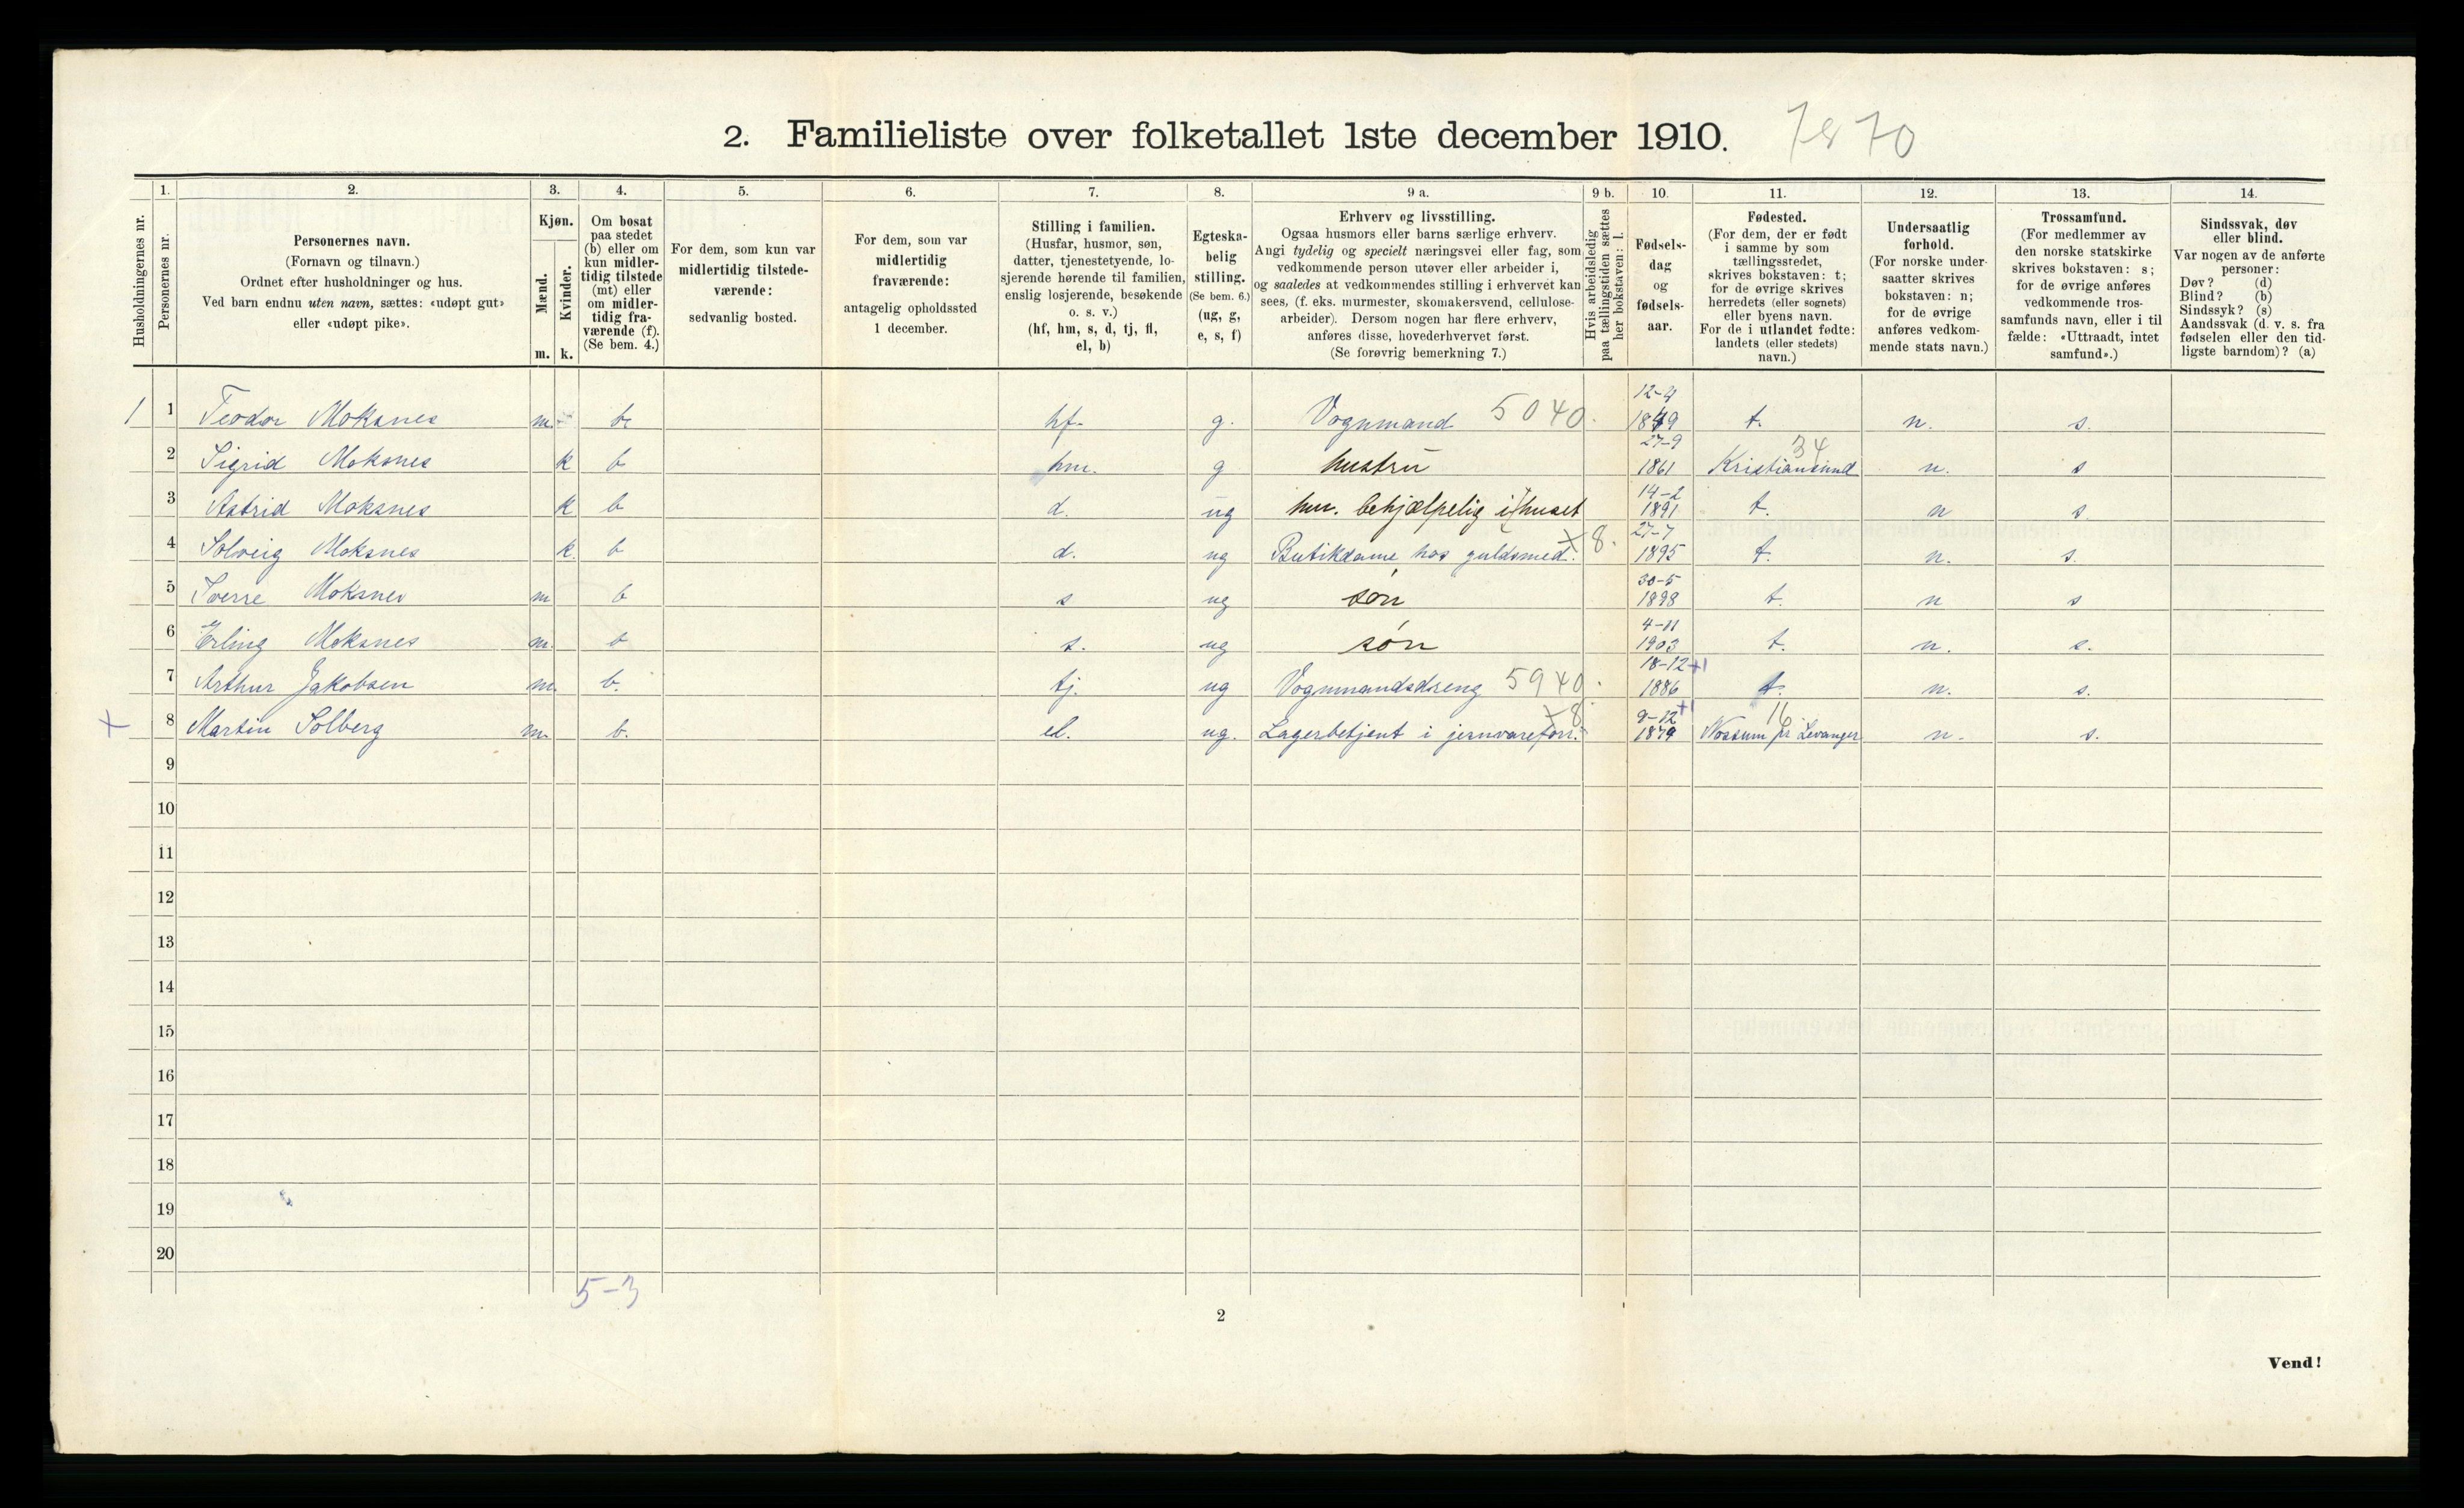 2. Familieliste over folketallet 1ste december 1910. 7870
1. 2. 3. 4. 5. 6. 7. 8. 9 a. 9 b. 10. 11. 12. 13. 14.
Husholdningernes nr.
Personernes nr.
Personernes navn.
(Fornavn og tilnavn.)
Ordnet efter husholdninger og hus.
Ved barn endnu uten navn, sættes: «udøpt gut»
eller «udøpt pike».
Kjøn.
Mænd.
Kvinder.
m. k.
Om bosat
paa stedet
(b) eller om
kun midler-
tidig tilstede
(mt) eller
om midler-
tidig fra-
værende (f).
(Se bem. 4.)
For dem, som kun var
midlertidig tilstede-
værende:
sedvanlig bosted.
For dem, som var
midlertidig
fraværende:
antagelig opholdssted
1 december.
Stilling i familien.
(Husfar, husmor, søn,
datter, tjenestetyende, lo-
sjerende hørende til familien,
enslig losjerende, besøkende
o. s. v.)
(hf, hm, s, d, tj, fl,
el, b)
Egteska-
belig
stilling.
(Se bem. 6.)
(ug, g,
e, s, f)
Erhverv og livsstilling.
Ogsaa husmors eller barns særlige erhverv.
Angi tydelig og specielt næringsvei eller fag, som
vedkommende person utøver eller arbeider i,
og saaledes at vedkommendes stilling i erhvervet kan
sees, (f. eks. murmester, skomakersvend, cellulose-
arbeider). Dersom nogen har flere erhverv,
anføres disse, hovederhvervet først.
(Se forøvrig bemerkning 7.)
Hvis arbeidsledig
paa tællingstiden sættes
her bokstaven: l.
Fødsels-
dag
og
fødsels-
aar.
Fødested.
(For dem, der er født
i samme by som
tællingsstedet,
skrives bokstaven: t;
for de øvrige skrives
herredets (eller sognets)
eller byens navn.
For de i utlandet fødte:
landets (eller stedets)
navn.)
Undersaatlig
forhold.
(For norske under-
saatter skrives
bokstaven: n;
for de øvrige
anføres vedkom-
mende stats navn.)
Trossamfund.
(For medlemmer av
den norske statskirke
skrives bokstaven: s;
for de øvrige anføres
vedkommende tros-
samfunds navn, eller i til
fælde: «Uttraadt, intet
samfund».)
Sindssvak, døv
eller blind.
Var nogen av de anførte
personer:
Døv? (d)
Blind? (b)
Sindssyk? (s)
Aandssvak (d. v. s. fra
fødselen eller den tid-
ligste barndom)? (a)
1 1 Teodor Moksnes m. b. hf. g. Vognmand 5040. 12-4 1849 t. n. s.
2 Sigrid Moksnes k b hm. g hustru 27-9 1861 34 Kristiansund n. s
3 Astrid Moksnes k b d. ug hm. behjælpelig i huset 14-2 1891 t. n s
4 Solveig Moksnes k. b d. ug Butikdame hos guldsmed. x 8. 27-7 1895 t. n. s.
5 Sverre Moksnes m b s ug søn 30-5 1898 t. n s
6 Erling Moksnes m. b s. ug søn 4-11 1903 t. n. s.
7 Arthur Jakobsen m. b. tj. ug Vognmandsdreng 5940. 18-12 +1 1886 t. n. s.
x 8 Martin Solberg m. b. el. ug. Lagerbetjent i jernvareforr. x 8 9-12 +1 1879 16 Nossum pr Levanger n. s.
9
10
11
12
13
14
15
16
17
18
19
20
5-3
2
Vend!